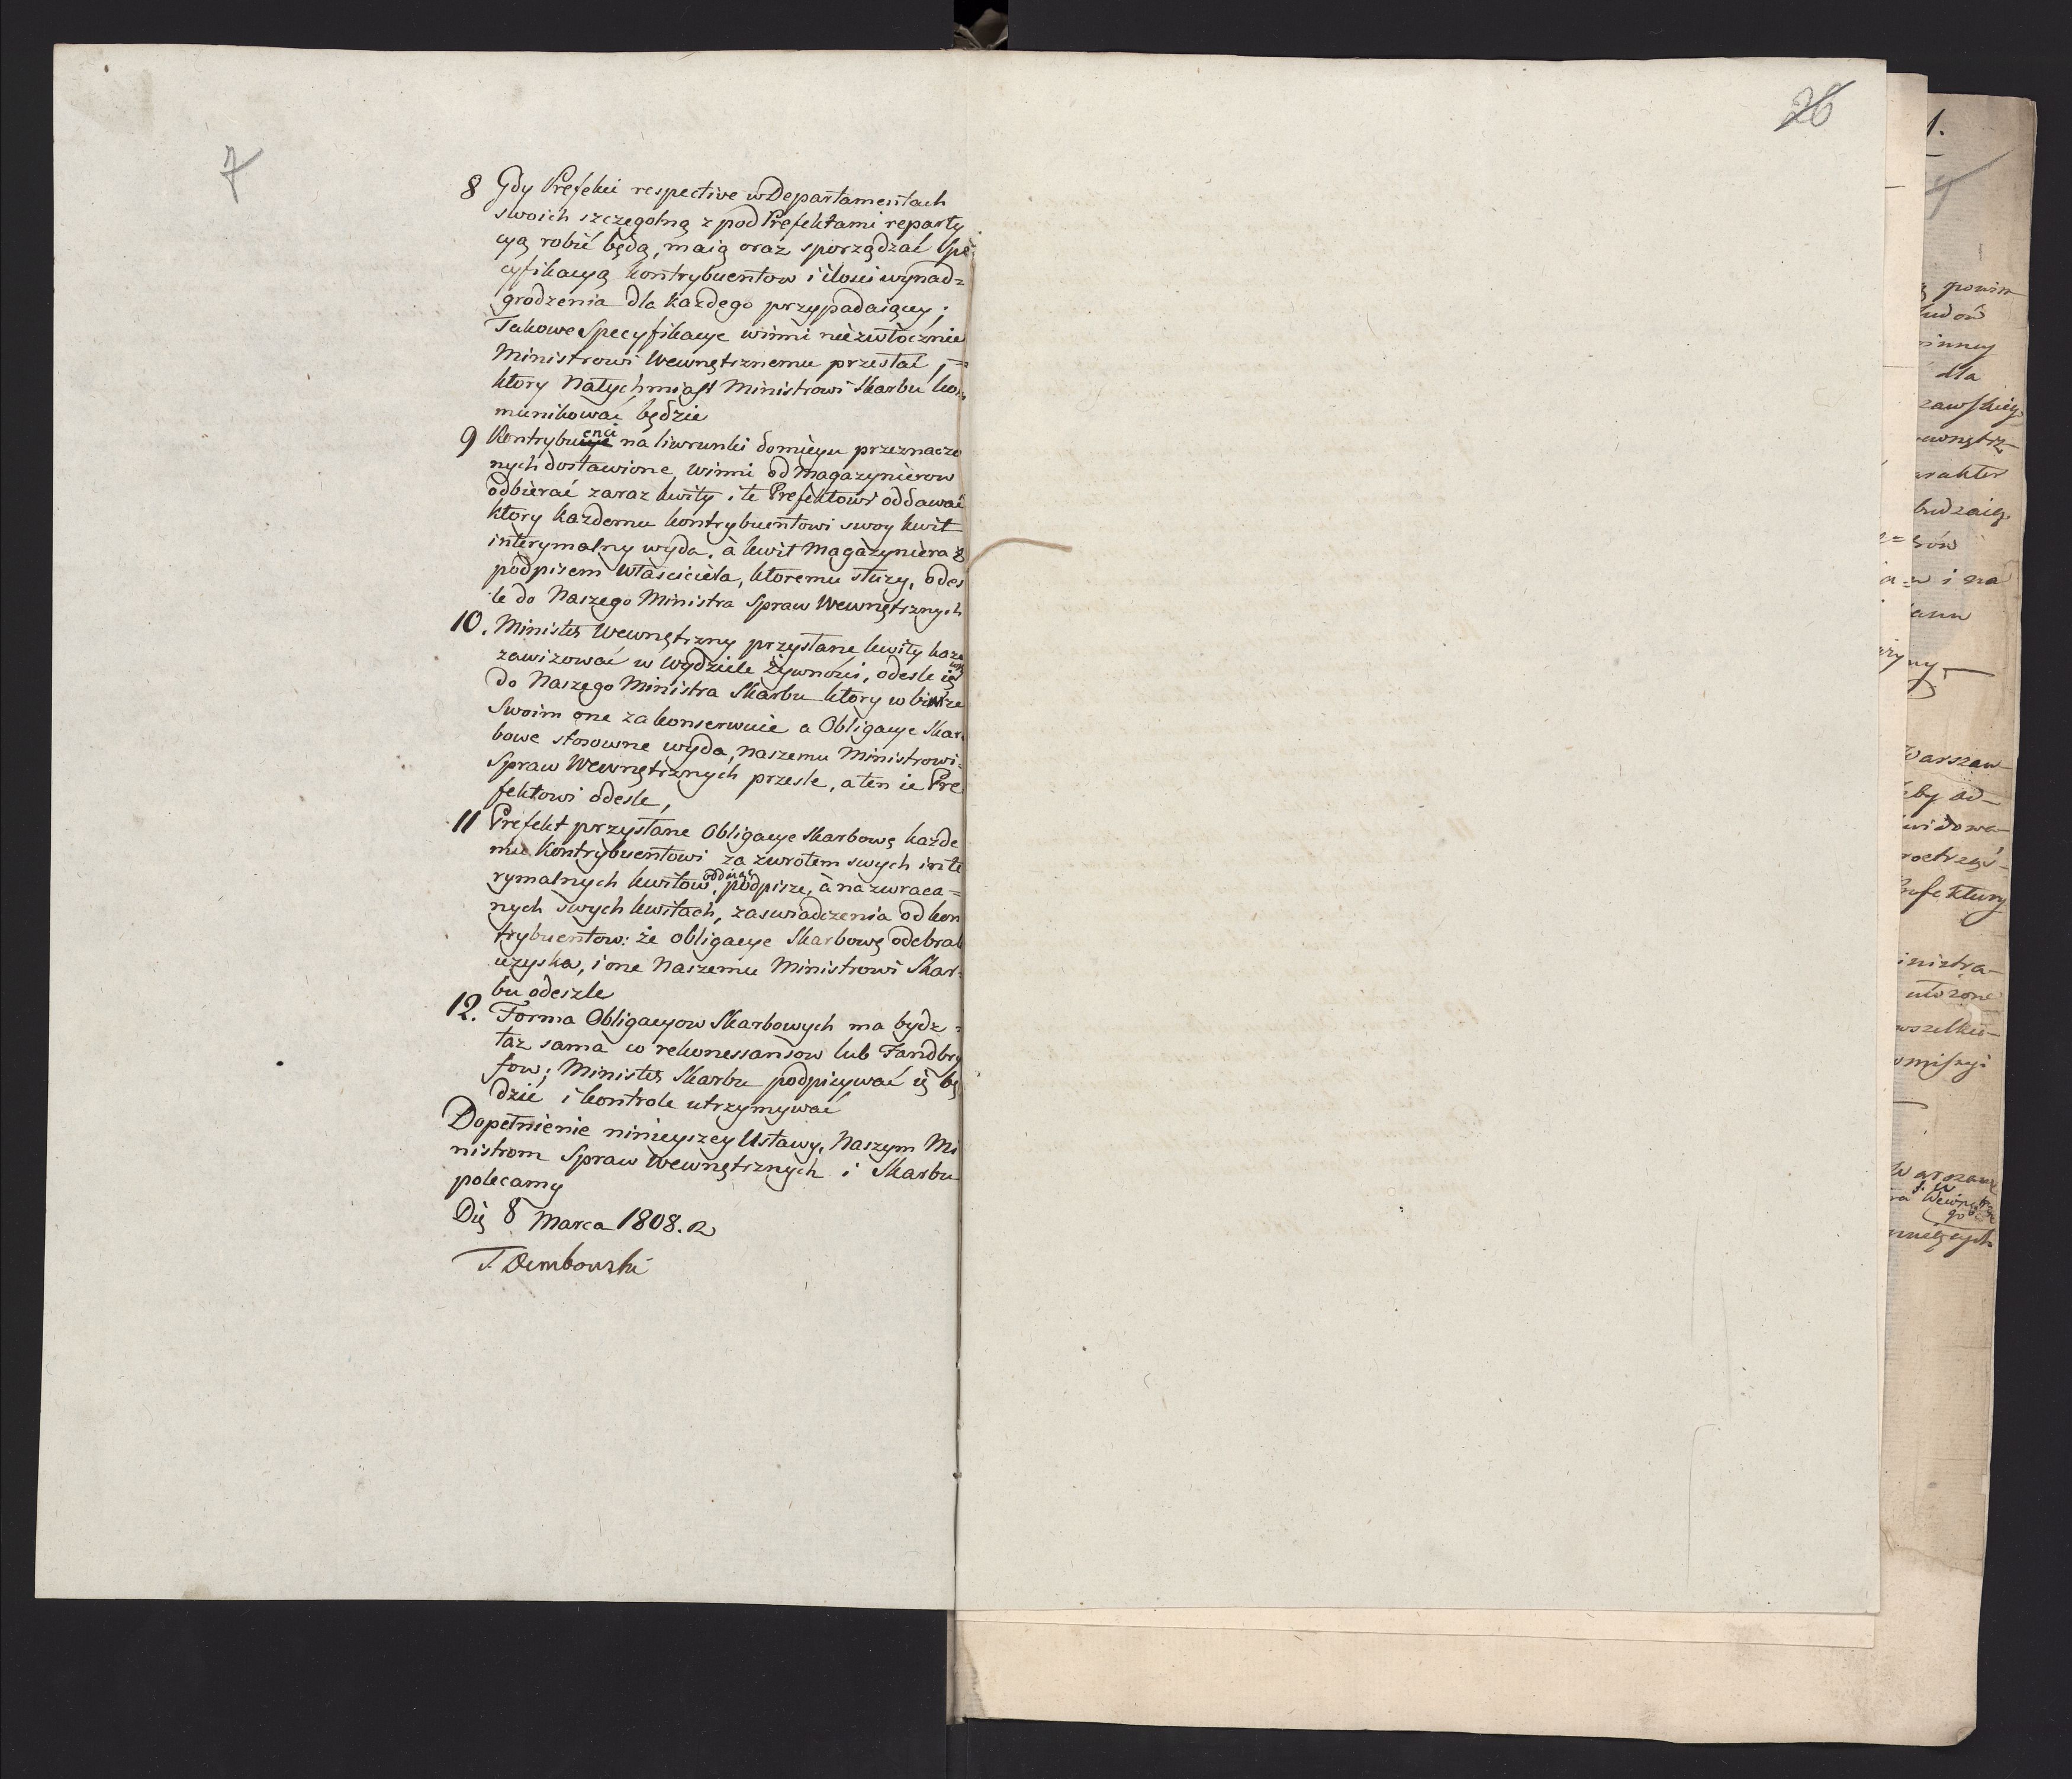 7
26
8 Gdy Prefekci respective w Departamentach
swoich szczegolną z pod Prefektami reparty
cyą robić będą, maią oraz sporządzać Spe-
cyfikacyą kontrybuentow i ilości wynad=
grodzenia dla każdego przypadaiący;
Takowe Specyfikacye winni niezwłocznie
Ministrowi Wewnętrznemu przesłać, =
ktory natychmiast Ministrowi Skarbu ko-
munikować będzie
9 Kontrybuenci na liwrunki do mieysc przeznaczo
nych dostawione, winni od Magazynierow
odbierać zaraz kwity i te Prefektowi oddawać
ktory każdemu kontrybuentowi swoy kwit
interymalny wyda, à kwit Magazyniera z
podpisem Właściciela, ktoremu służy, odes
le do Naszego Ministra Spraw Wewnętrznych
10. Minister Wewnętrzny przysłane kwity każe
zawizować w Wydziele Żywności, odesle ię
do Naszego Ministra Skarbu ktory w biórze
Swoim one zakonserwuie a Obligacye Skar-
bowe stosowne wyda, naszemu Ministrowi=
Spraw Wewnętrznych przesle, a ten ie Pre
fektowi odesle,
11 Prefekt przysłane Obligacye Skarbowę każde
mu Kontrybuentowi za zwrotem swych inte
rymalnych kwitow, oddaiąc podpisze, à na zwraca=
nych swych kwitach, zaswiadczenia od kon
trybuentow: że obligacye Skarbowę odebrali
uzyska, i one Naszemu Ministrowi Skar-
bu odeszle
12. Forma Obligacyow Skarbowych ma bydz =
taż sama co rekonessansow lub Fandbry
fow; Minister Skarbu podpisywać ię bę
dzie i kontrole utrzymywać
Dopełnienie ninieyszey Ustawy, Naszym Mi
nistrom Spraw Wewnętrznych i Skarbu
polecamy
Dię 8 Marca 1808. R
T. Dembowski